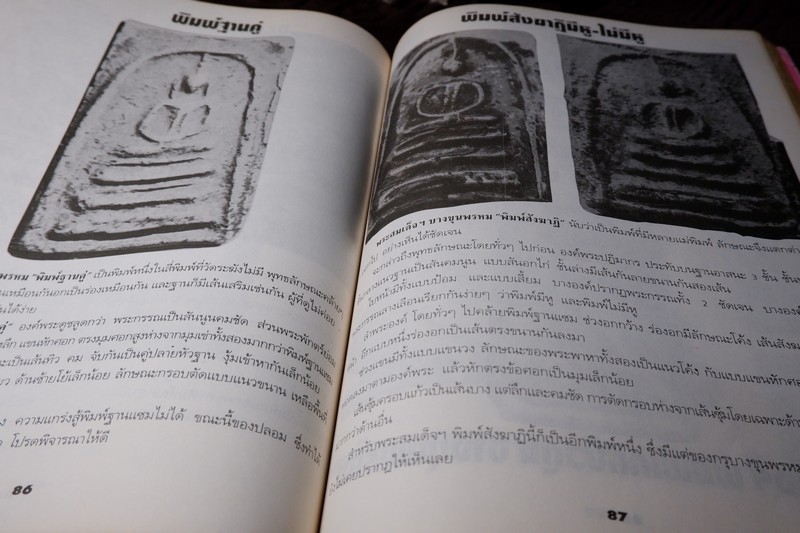 พิมพ์ฐานคู่
พรหม "พิมพ์ฐานคู่" เป็นพิมพ์หนึ่งในสี่พิมพ์ที่วัดระฆังไม่มี พุทธลักษณะคล้ายๆ
เหมือนกันอกเป็นร่องเหมือนกัน และฐานก็มีเส้นแซมเช่นกัน ผู้ที่ดูไม่ค่อย
ได้ง่าย
องค์พระดูชลูดกว่า พระกรรณเป็นสันนูนคมชัด ส่วนพระพักตร์
ลึก แขนหักศอก ตรงมุมศอกสูงห่างจากมุมเข่าทั้งสองมากกว่าพิมพ์ฐานแซม
เป็นเส้นทิว คม จับกันเป็นคู่ปลายหัวฐาน งุ้มเข้าหากันเล็กน้อย
ด้านซ้ายโย้เล็กน้อย ลักษณะกรอบตัดแบบแนวขนาน เหลือพื้นที่
ความแกร่งสู้พิมพ์ฐานแซมไม่ได้ ขณะนี้ของปลอม ซึ่งทำได้
โปรดพิจารณาให้ดี
86
พิมพ์สังฆาฏิมีหู-ไม่มีหู
พระสมเด็จฯ บางขุนพรหม "พิมพ์สังฆาฏิ" นับว่าเป็นพิมพ์ที่มีหลายแม่พิมพ์ ลักษณะจึงแตกต่าง
ไป อย่างเห็นได้ชัดเจน
จะกล่าวถึงพุทธลักษณะโดยทั่วๆ ไปก่อน องค์พระปฏิมากร ประทับบนฐานอาสนะ 3 ชั้น
แนวฐานเป็นสันคมนูน แบบสันอกไก่ ชั้นล่างมีเส้นกันลายขนานกันสองเส้น
ใบหน้ามีทั้งแบบป้อม และแบบเสี้ยม บางองค์ปรากฏพระกรรณทั้ง 2 ชัดเจน บางองค์
พระกรรณลางเลือนเรียกกันง่ายๆ ว่าพิมพ์มีหู และพิมพ์ไม่มีหู
ลำพระองค์ โดยทั่วๆ ไปคล้ายพิมพ์ฐานแซม ช่วงอกกว้าง ร่องอกมีลักษณะโค้ง เส้นสังฆาฏิ
อีกแบบหนึ่งร่องอกเป็นเส้นตรงขนานกันลงมา
ช่วงแขนมีทั้งแบบแขนวง ลักษณะของพระพาหาทั้งสองเป็นแนวโค้ง กับแบบแขนหักศอก
ลงมาตามองค์พระ แล้วหักตรงข้อศอกเป็นมุมเล็กน้อย
เส้นซุ้มครอบแก้วเป็นเส้นบาง แต่ลึกและคมชัด การตัดกรอบห่างจากเส้นซุ้มโดยเฉพาะด้าน
มากกว่าด้านอื่น
สำหรับพระสมเด็จฯ พิมพ์สังฆาฏินี้ก็เป็นอีกพิมพ์หนึ่ง ซึ่งมีแต่ของกรุบางขุนพรหม
ยังไม่เคยปรากฏให้เห็นเลย
87